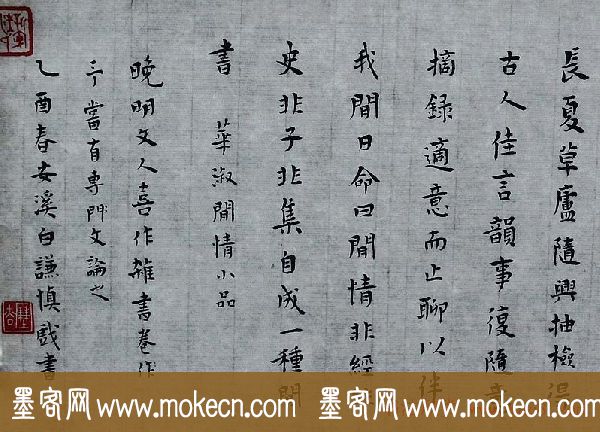 長夏草廬隨興抽檢得
古人佳言韻事復隨意
摘錄適意而止聊以伴
我閒日命曰閒情非經
史非子非集自成一種閒
書 華淑閒情小品
晚明文人喜作雜書卷作
予當有專門文論之
乙酉春安溪白謙慎戲書
墨客网 www.mokecn.com 墨客网 www.mokecn.com